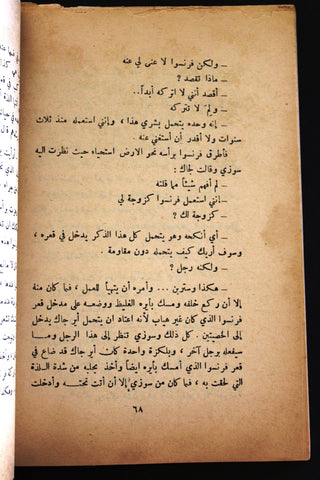 ـ ولكن فرنسوا لا غنى لي عنه
ـ ماذا تقصد ؟
ـ أقصد أنني لا اتركه أبداً..
ـ ولم لا تتركه
ـ إنه وحده يتحمل بشري هذا ، وإنني استعمله منذ ثلاث
سنوات ولا أقدر أن أستغني عنه .
فأطرق فرنسوا برأسه نحو الارض استحياء حيث نظرت اليه
سوزي وقالت لجاك :
ـ لم افهم شيئاً مما قلته
ـ إنني استعمل فرنسوا كزوجة لي
ـ كزوجة لك ؟
ـ أي أنكحه وهو يتحمل كل هذا الذكر يدخل في قعره ،
وسوف أريك كيف يتحمله دون مقاومة .
ـ ولكنه رجل ؟
ـ هكذا وسترين... وأمره أن يتهيأ للعمل ، فما كان منه
إلا أن ركع خلفه ومسك بأيره الغليظ ووضعه على مدخل قعر
فرنسوا الذي كان غير هياب لأنه اعتاد ان يتحمل أير جاك يدخل
إلى الخصيتين . كل ذلك وسوزي تنظر إلى هذا الرجل ومـا
سيفعله برجل آخر ، وبلكزة واحدة كان أير جاك قد ضاع في
قعر فرنسوا الذي أمسك بأيره ايضاً وأخذ يجلبه من شدة اللذة
التي حلقت به ، فما كان من سوزي إلا أن أتت تحتـه وأدخلت
٦٨